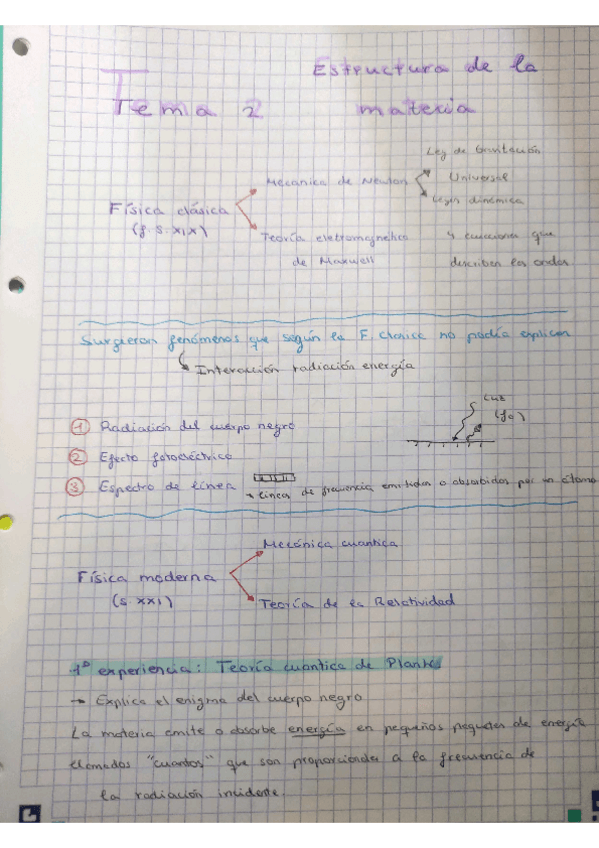 Estructura de la
Tema 2 materia
Ley de Gravitación
Mecanica de Newton Universal
Leyes dinámica
Física clásica
(f. s. XIX)
Teoría eletromagnetica 4 ecuaciones que
de Maxwell describen las ondas
Surgieron fenómenos que según la F. Clasica no podía explicar
Interacción radiación energía
① Radiación del cuerpo negro
luz
(f0)
② Efecto fotoeléctrico
③ Espectro de línea
líneas de frecuencia emitidas o absorbidas por un átomo
Mecánica cuantica
Física moderna
(s. XXI)
Teoría de la Relatividad
1º experiencia: Teoría cuantica de Planks
→ Explica el enigma del cuerpo negro
La materia emite o absorbe energía en pequeños paquetes de energía
llamados "cuantos" que son proporcionales a la frecuencia de
la radiación incidente.